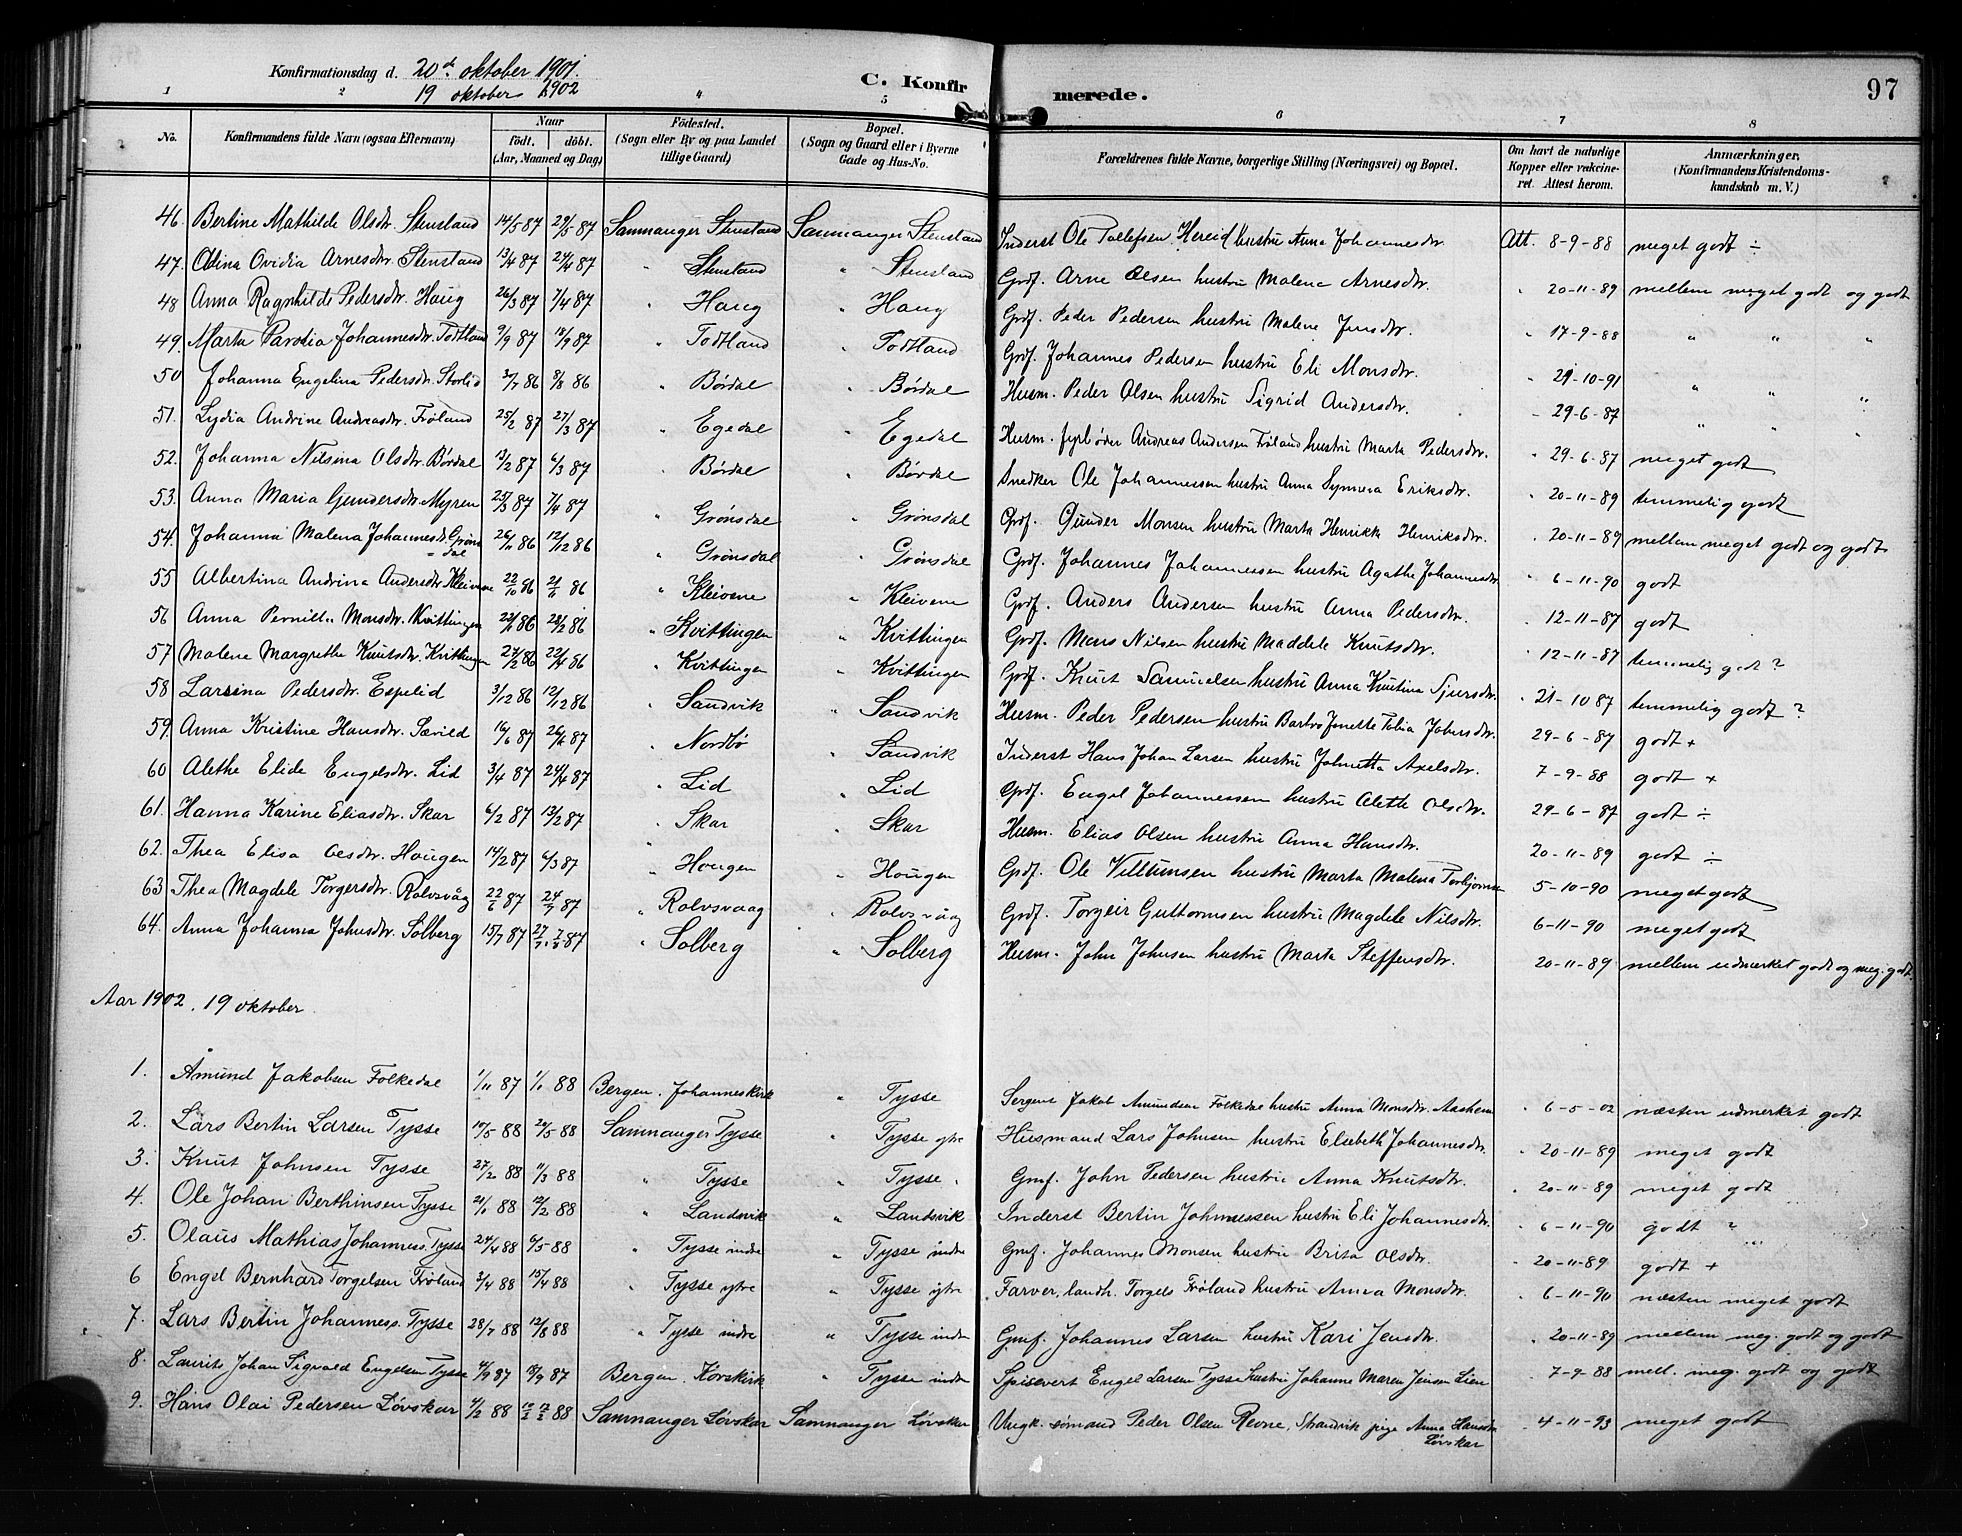 Konfirmationsdag d. 20de oktober 1901.
19 oktober 1902
C. Konfirmerede.
97
1 2 " 5 6 7 8
No. Konfirmandens fulde Navn (ogsaa Efternavn) Naar født. døbt. (Aar, Maaned og Dag) Fødested. (Sogn eller By og paa Landet tillige Gaard) Bopæl. (Sogn og Gaard eller i Byerne Gade og Hus-No. Forældrenes fulde Navne, borgerlige Stilling (Næringsvei) og Bopæl. Om havt de naturlige Kopper eller vakcineret. Attest herom. Anmærkninger. (Konfirmandens Kristendomskundskab m. V.)
46. Bertine Mathilde Olsdtr. Stensland 14/5 87 29/5 87 Samnanger Stensland Samnanger Stensland Inderst Ole Tollefsen Hereid hustru Anna Johannesdtr. Att. 8-9-88 meget godt ÷
47. Olina Ovidia Arnesdtr. Stensland 13/4 87 24/4 87 " Stensland " Stensland Grdf. Arne Olsen hustru Malena Arnesdtr. " 20-11-89 mellem meget godt og godt
48 Anna Ragnhilde Pedersdtr. Haug 26/3 87 7/4 87 " Haug " Haug Grdf. Peder Pedersen hustru Malene Jensdtr. " 17-9-88 " " "
49. Marta Parolia Johannesdtr. Todtland 9/9 87 18/9 87 " Todtland " Todtland Grdf. Johannes Pedersen hustru Eli Monsdtr. " 29-10-91 " " "
50 Johanna Engelina Pedersdtr. Storlid 3/7 86 8/8 86 " Børdal " Børdal Husm. Peder Olsen hustru Sigrid Andersdtr. " 29-6-87 " " "
51. Lydia Andrine Andreasdtr. Frøland 25/2 87 27/3 87 " Egedal " Egedal Husm. fyrbøder Andreas Andersen Frøland hustru Marta Pedersdtr. " 29-6-87 meget godt
52. Johanna Nilsina Olsdtr. Børdal 13/2 87 6/3 87 " Børdal " Børdal Snedker Ole Johannessen hustru Anna Synneva Eriksdtr. " 20-11-89 temmelig godt
53. Anna Maria Gundersdtr. Myren 25/3 87 7/4 87 " Grønsdal " Grønsdal Grdf. Gunder Monsen hustru Marta Henrikka Henriksdtr. " 20-11-89 mellem meget godt og godt
54. Johanna Malena Johannesdt. Grønsdal 26/11 86 12/12 86 " Grønsdal " Grønsdal Grdf. Johannes Johannessen hustru Agathe Johannesdtr " 6-11-90 godt
55 Albertina Andrina Andersdtr. Kleivene 22/10 86 21/11 86 " Kleivene " Kleivene Grdf. Anders Andersen hustru Anna Pedersdtr. " 12-11-87 godt
56 Anna Pernilla Monsdtr. Kvittingen 86 86 " Kvittingen " Kvittingen Grdf. Mons Nilsen hustru Maddele Knutsdtr. " 12-11-87 temmelig godt?
57 Malene Margrethe Knutsdtr. Kvittingen 86 86 " Kvittingen " Kvittingen Grdf. Knut Samuelsen hustru Anna Knutina Sjursdtr. " 21-10 87 temmelig godt?
58 Larsina Pedersdtr. Espelid 3/12 86 12/12 86 " Sandvik " Sandvik Husm. Peder Pedersen hustru Barbro Jonette Tobia Jobensdtr. " 29-6-87 godt +
59. Anna Kristine Hansdtr. Sævild 87 87 " Nordbø " Sandvik Inderst Hans Johan Larsen hustru Johnetta Axelsdtr. 7-9-88 godt +
60 Alethe Elide Engelsdtr. Lid 3/4 87 24/4 87 " Lid " Lid Grdf. Engel Johannessen hustru Alette Olsdtr. 29-6-87 godt ÷
61. Hanna Karine Eliasdtr. Skar 6/2 87 13/2 87 " Skar " Skar Husm. Elias Olsen hustru Anna Hansdtr. 20-11-89 godt ÷
62. Thea Elisa Olsdtr. Hougen 14/2 87 6/3 87 " Hougen " Hougen Grdf. Ole Villumsen hustru Marta Malena Torbjørnsen 5-10-90 meget godt
63 Thea Magdele Torgersdtr. Rolvsvåg 22/6 87 24/7 87 " Rolvsvaag " Rolvsvåg Grdf. Torgeir Guttormsen hustru Magdele Nilsdtr. 6-11-90 meget godt
64. Anna Johanna Johnsdtr. Solberg 15/7 87 27/7 7/8 87 " Solberg " Solberg Husm. John Johnsen hustru Marta Steffensdtr. 20-11-89 mellem udmerket godt og meg. godt
Aar 1902. 19 oktober.
1. Åmund Jakobsen Folkedal 1/11 87 1/1 88 Bergen. Johanneskirk " Tysse Sergent Jakob Amundsen Folkedal hustru Anna Monsdtr. Aasheim " 6-5-02 næsten udmerket godt
2. Lars Bertin Larsen Tysse 10/5 88 20/5 88 Samnanger Tysse " Tysse ytre Husmand Lars Johnsen hustru Elsebeth Johannesdtr. " 20-11-89 meget godt
3. Knut Johnsen Tysse 27/2 88 11/3 88 " Tysse " Tysse. Gmf. John Pedersen hustru Anna Knutsdtr. " 20-11-89 meget godt
4. Ole Johan Berthinsen Tysse 21/1 88 12/2 88 " Landsvik " Landsvik Inderst Bertin Johnnessen hustru Eli Johannesdtr. " 6-11-90 godt "
5. Olaus Mathias Johanness. Tysse 24/4 88 6/5 88 " Tysse indre " Tysse indre Gmf. Johannes Monsen hustru Brita Olsdtr. " 20-11-89 godt +
6 Engel Bernhard Torgelsen Frøland 2/4 88 15/4 88 " Tysse ytre " Tysse ytre Farver, landh. Torgels Frøland hustru Anna Monsdtr. " 6-11-90 næsten meget godt
7. Lars Bertin Johanness. Tysse 28/7 88 12/8 88 " Tysse indre " Tysse indre Gmf. Johannes Larsen hustru Kari Jensdtr. " 20-11-89 mellem meg. godt og godt
8. Laurits Johan Sigvald Engelsen Tysse 4/9 87 18/9 87 Bergen. Korskirk " Tysse indre Spisevert Engel Larsen Tysse hustru Johanne Maren Jensen Lien " 7-9-88 mell. meg. godt og godt
9. Hans Olai Pedersen Løvskar 4/2 88 88 Samnanger Løvskar Samnanger Løvskar Ungk. sømand Peder Olsen Revne, Strandvik pige Anna Hansdtr Løvskar " 4-11-93 meget godt